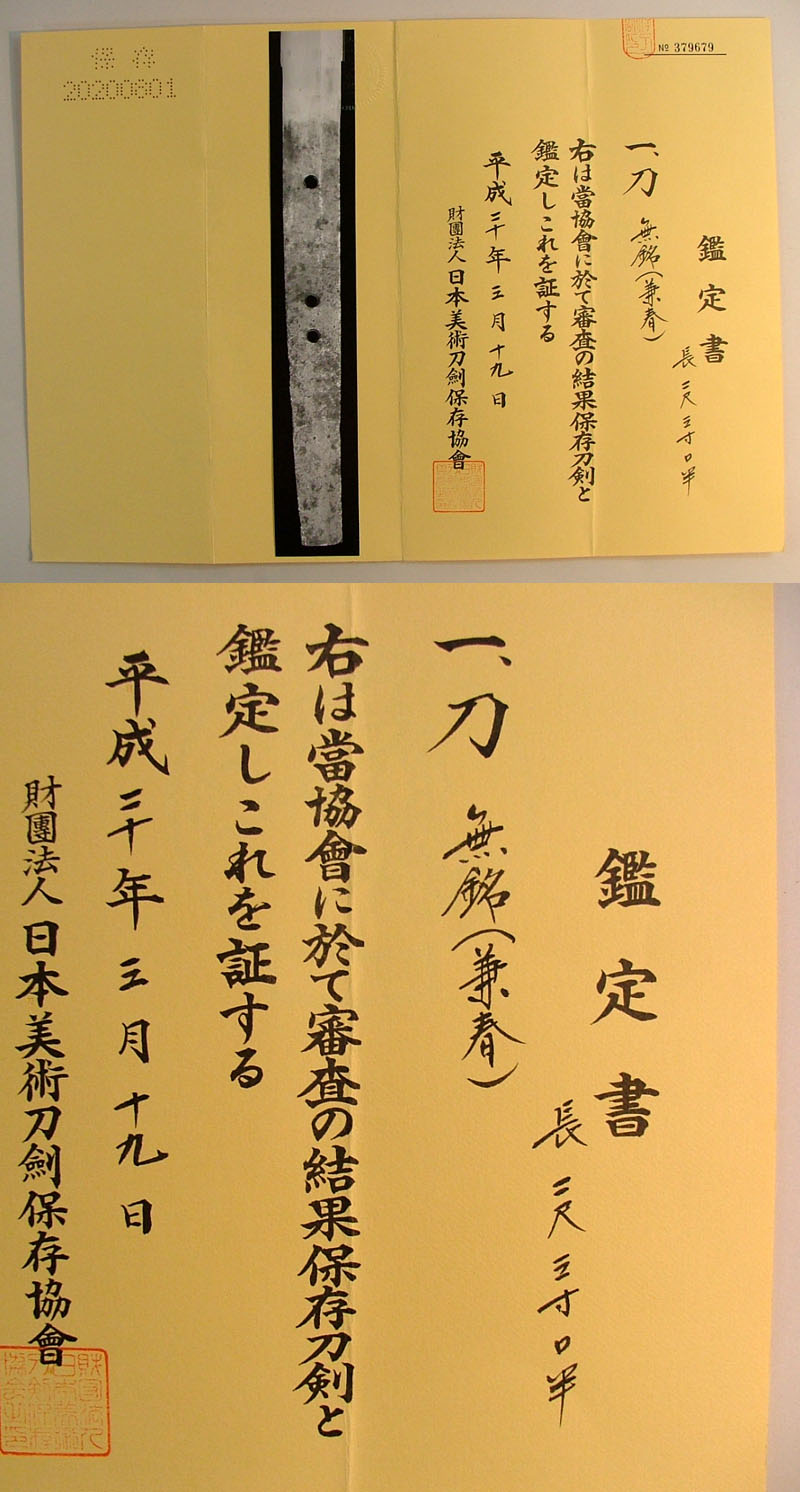 保存
№ 379679
鑑定書
長 二尺 三寸 〇半
一、刀 無銘(兼春)
右は當協會に於て審査の結果保存刀剣と
鑑定しこれを証する
平成 二十 年 三 月 十九 日
財團法人 日本美術刀劍保存協會
鑑定書
長 二尺 三寸 〇半
一、刀 無銘(兼春)
右は當協會に於て審査の結果保存刀剣と
鑑定しこれを証する
平成 二十 年 三 月 十九 日
財團法人 日本美術刀劍保存協會